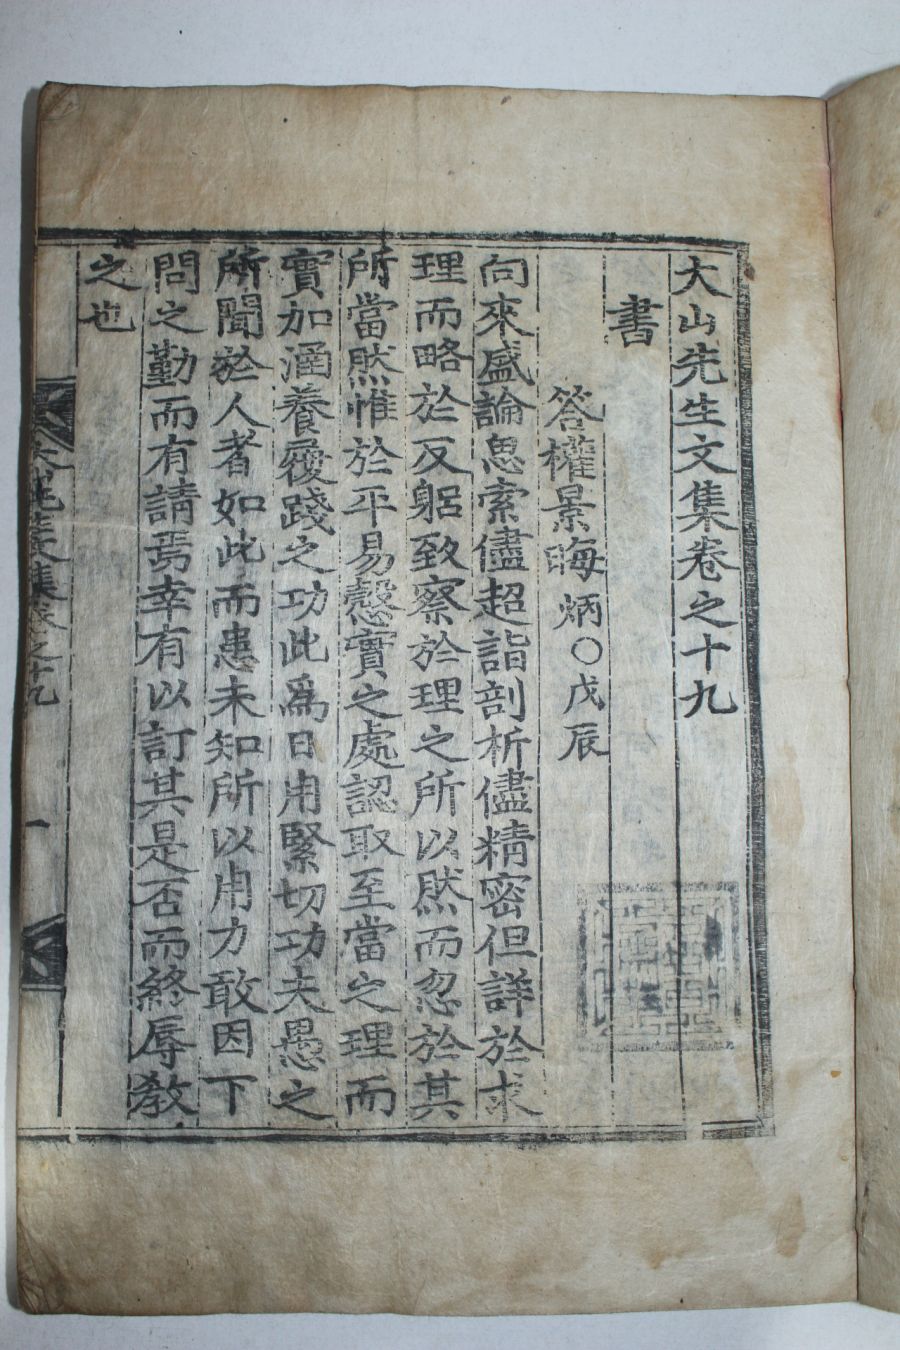 大山先生文集卷之十九
書
答權景晦炳○戊辰
向來盛論思索儘超詣剖析儘精密但詳於求
理而略於反躬致察於理之所以然而忽於其
所當然惟於平易慤實之處認取至當之理而
實加涵養履踐之功此爲日用緊切功夫愚之
所聞於人者如此而患未知所以用力敢因下
問之勤而有請焉幸有以訂其是否而終辱敎
之也